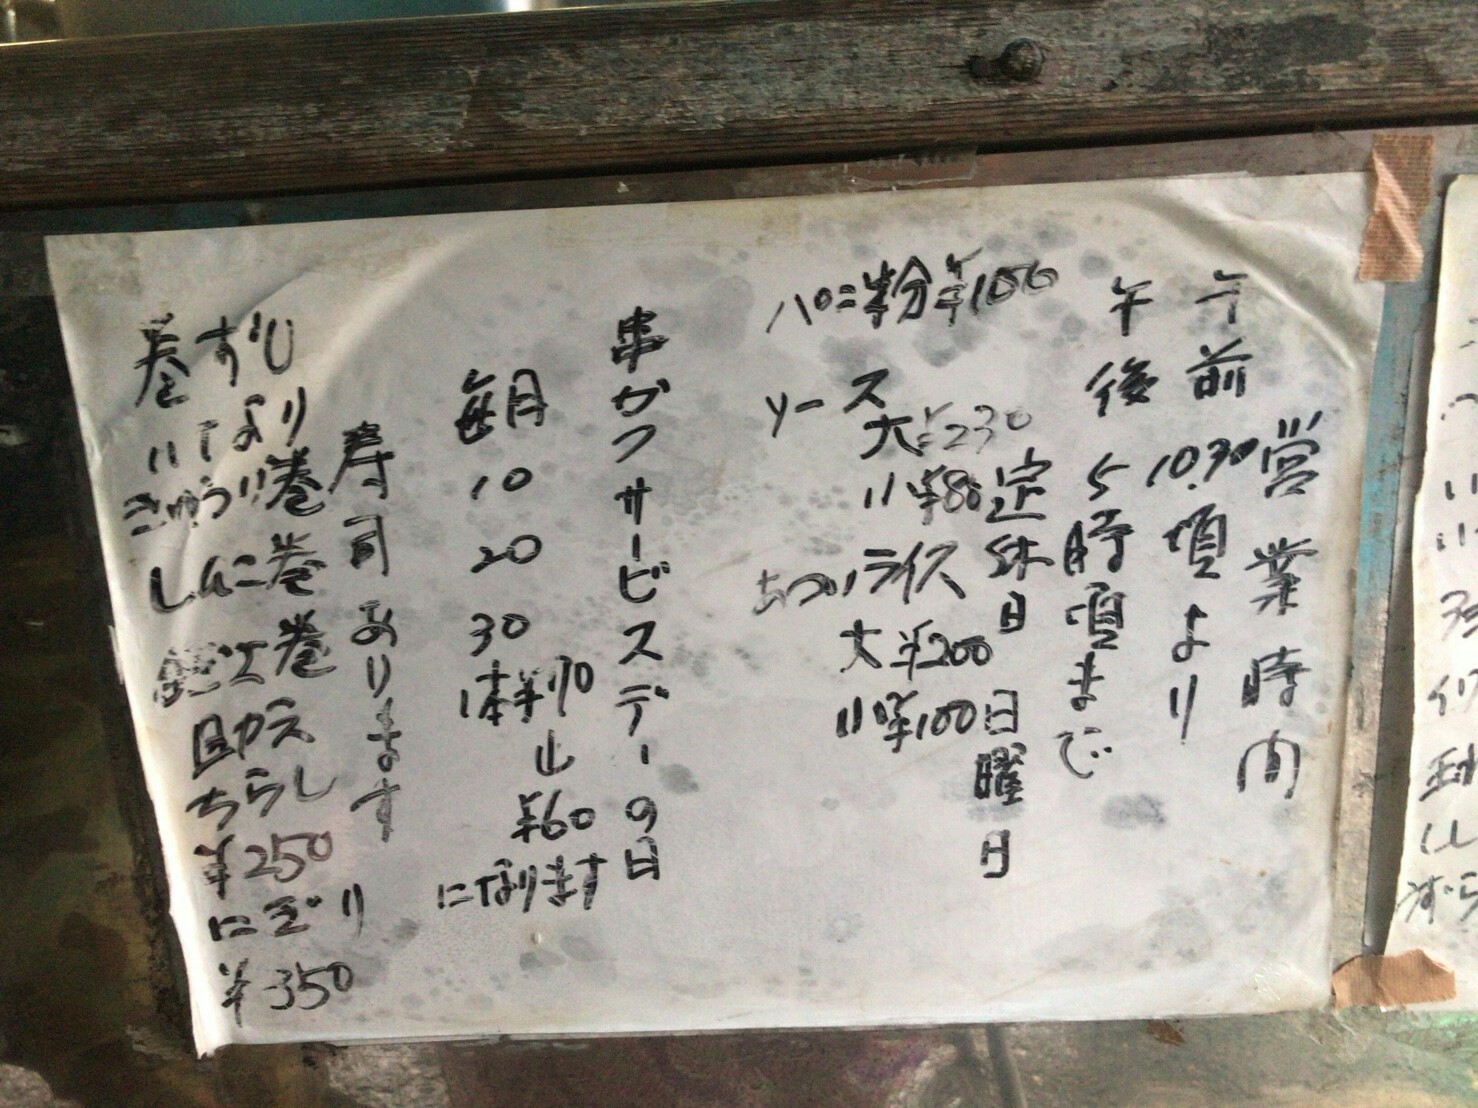 営業時間
午前10.30頃より
午後5時頃まで
定休日 日曜日
パン粉¥100
ソース
大¥230
小¥80
ライス
大¥200
小¥100
串カツサービスデーの日
毎月
10
20
30
1本¥70
¥60
になります
寿司あります
巻ずし
いなり
きゅうり巻
しんこ巻
巻
助六
ちらし
¥250
にぎり
¥350